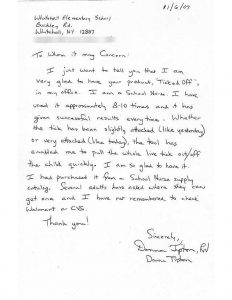 11/6/07
Whitehall Elementary School
Buckley Rd.
Whitehall, NY 12887
To Whom it may Concern:
I just want to tell you that I am
very glad to have your product, "Ticked Off",
in my office. I am a School Nurse. I have
used it approximately 8-10 times and it has
given successful results every time. Whether
the tick has been slightly attached (like yesterday)
or very attached (like today), the tool has
enabled me to pull the whole live tick out/off
the child quickly. I am so glad to have it.
I had purchased it from a School Nurse supply
catalog. Several adults have asked where they can
get one and I have not remembered to check
Walmart or CVS.
Thank you!
Sincerely,
Donna Tipton, RN
Donna Tipton